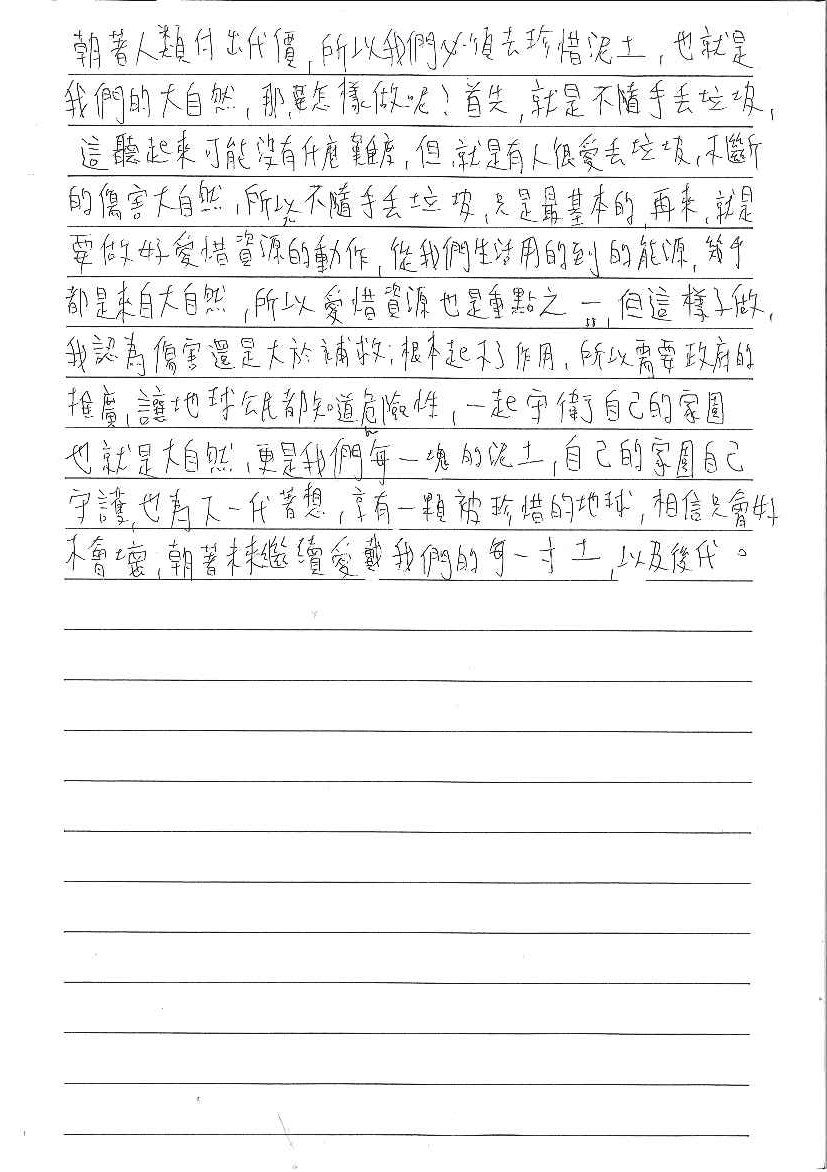 朝著人類付出代價,所以我們必須去珍惜泥土,也就是
我們的大自然,那要怎樣做呢?首先,就是不隨手丟垃圾,
這聽起來可能沒有什麼難度,但就是有人很愛丟垃圾,不斷
的傷害大自然,所以不隨手丟垃圾,只是最基本的,再來,就是
要做好愛惜資源的動作,從我們生活用的到的能源,幾乎
都是來自大自然,所以愛惜資源也是重點之一,但這樣子做,
我認為傷害還是大於補救,根本起不了作用,所以需要政府的
推廣,讓地球公民都知道危險性,一起守衛自己的家園
也就是大自然,更是我們每一塊的泥土,自己的家園自己
守護,也為下一代著想,享有一顆被珍惜的地球,相信只會好
不會壞,朝著未來繼續愛戴我們的每一寸土,以及後代。